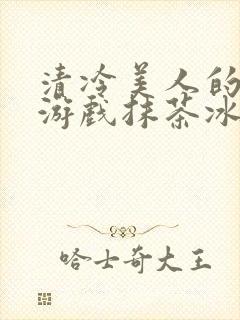 清冷美人的
游戏抹茶冰
哈士奇大王